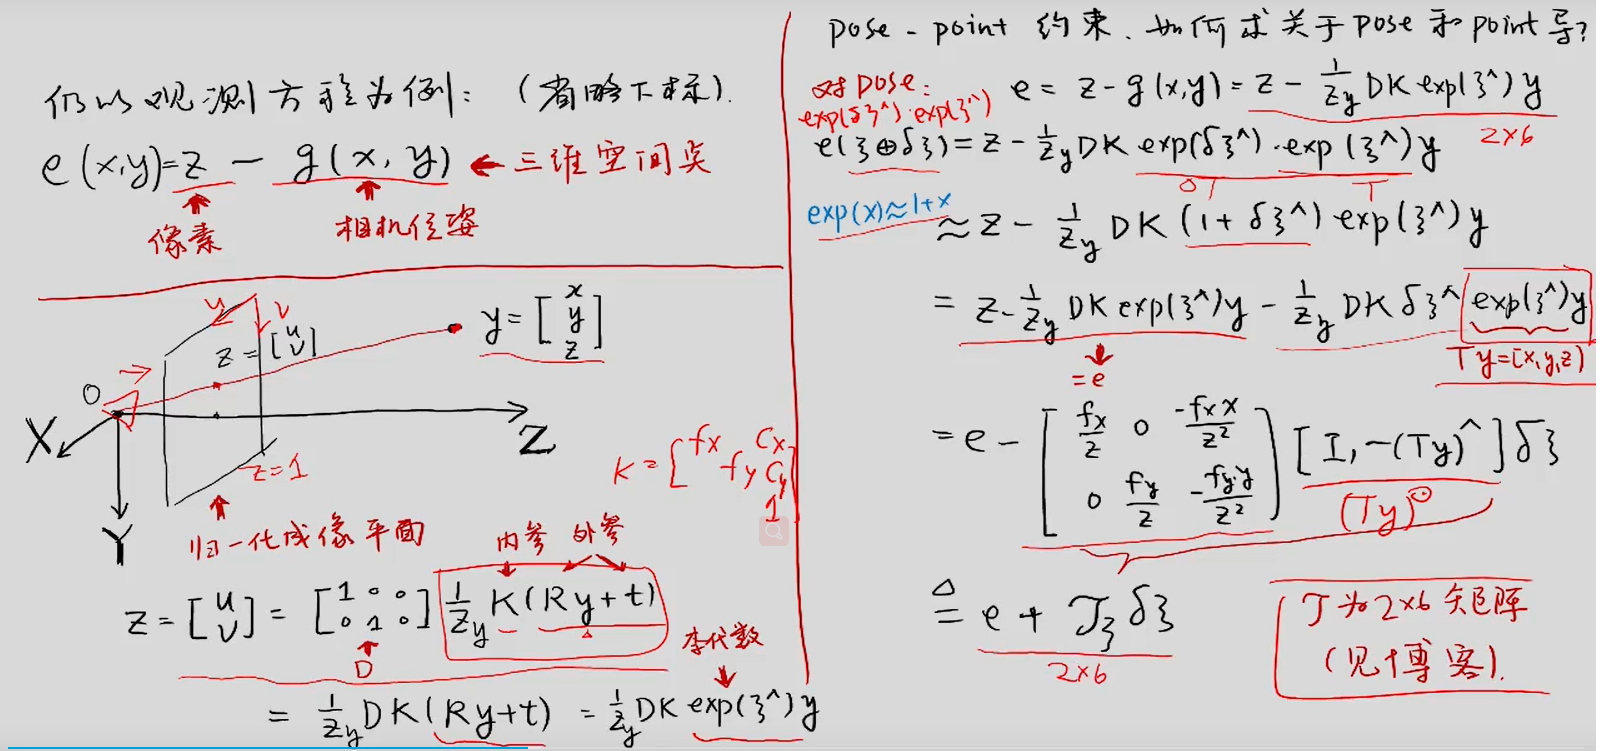 仍以观测方程为例：（省略下标）.
e(x,y)=z - g(x,y) ← 三维空间点
像素
相机位姿
u
v
z=[u v]
y=[x y z]
O
X
Y
Z
z=1
归一化成像平面
K=[fx cx fy cy 1]
内参 外参
z=[u v]=[1 0 0 0 1 0] 1/Zy K(Ry+t)
D
李代数
= 1/Zy DK(Ry+t) = 1/Zy DK exp(ξ^)y
pose - point 约束. 如何求关于pose和point导?
对pose: e = z-g(x,y) = z - 1/Zy DK exp(ξ^)y
exp(δξ^)·exp(ξ^)
2×6
e(ξ⊕δξ)=z - 1/Zy DK exp(δξ^)·exp(ξ^)y
δT T
exp(x)≈1+x
≈ z - 1/Zy DK (1+δξ^) exp(ξ^)y
= z - 1/Zy DK exp(ξ^)y - 1/Zy DK δξ^ exp(ξ^)y
=e
Ty=[x,y,z)
= e - [fx/z 0 -fx x/z² 0 fy/z -fy·y/z²] [I, -(Ty)^] δξ
(Ty)⊙
≜ e + Jξ δξ
2×6
J为2×6矩阵
(见博客).